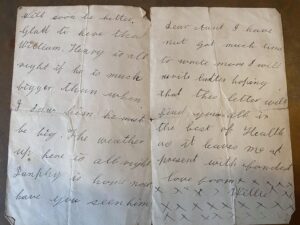 will soon be better
Glad to hear that
William Henry is all
right if he is much
bigger than when
I saw him he must
be big. The weather
up here is all right
is home now
have you seen him
Dear Aunt I have
not got much time
to write more I will
write later hoping
that this letter will
find yourself in
the best of Health
as it leaves me at
present with fondest
love from
Willie
x x x x x x x
x x x x x x x x